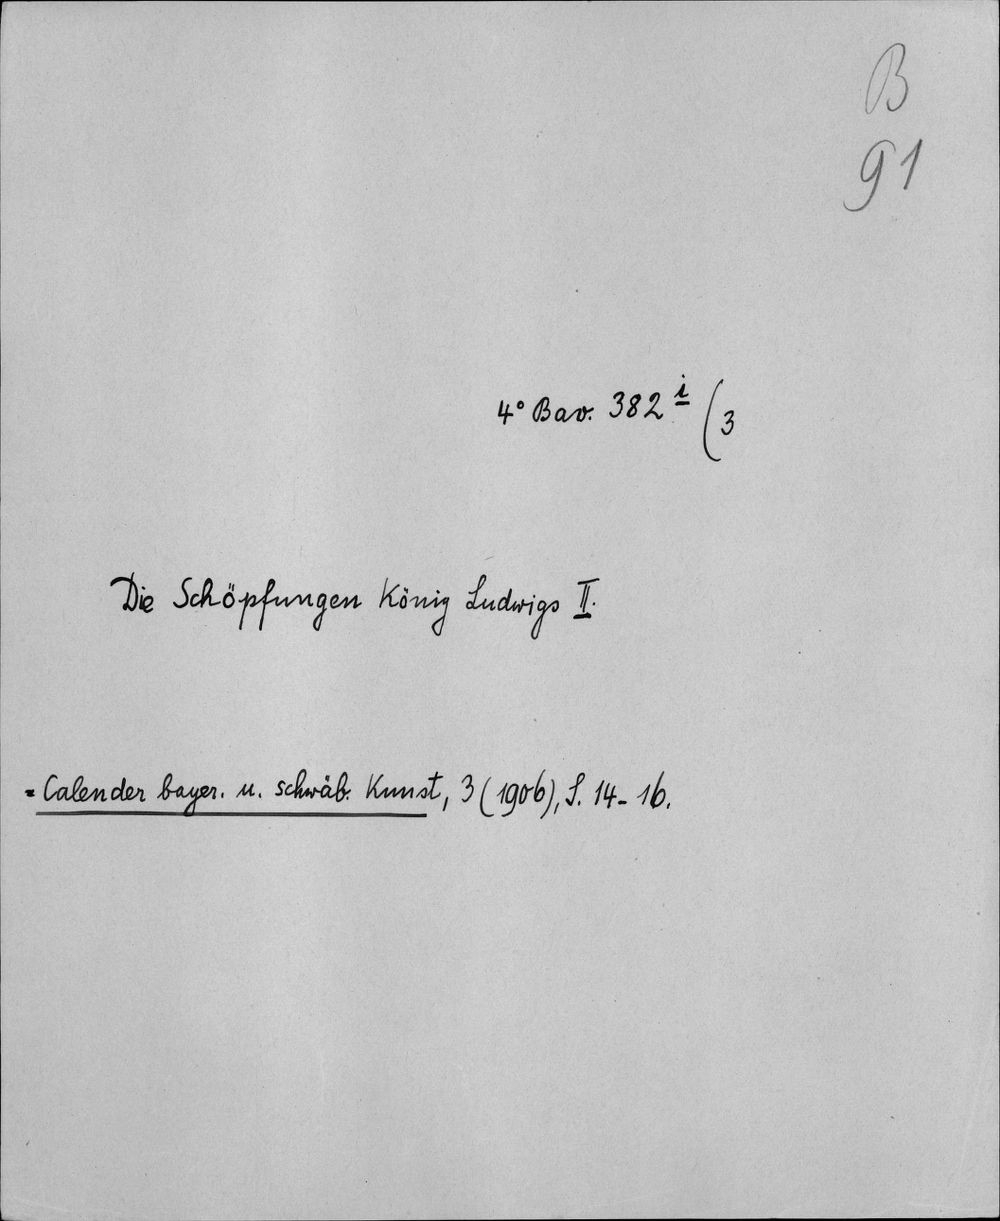 B
91
4° Bav. 382 i (3
Die Schöpfungen König Ludwigs II.
= Calender bayer. u. schwäb. Kunst, 3 (1906), S. 14-16.